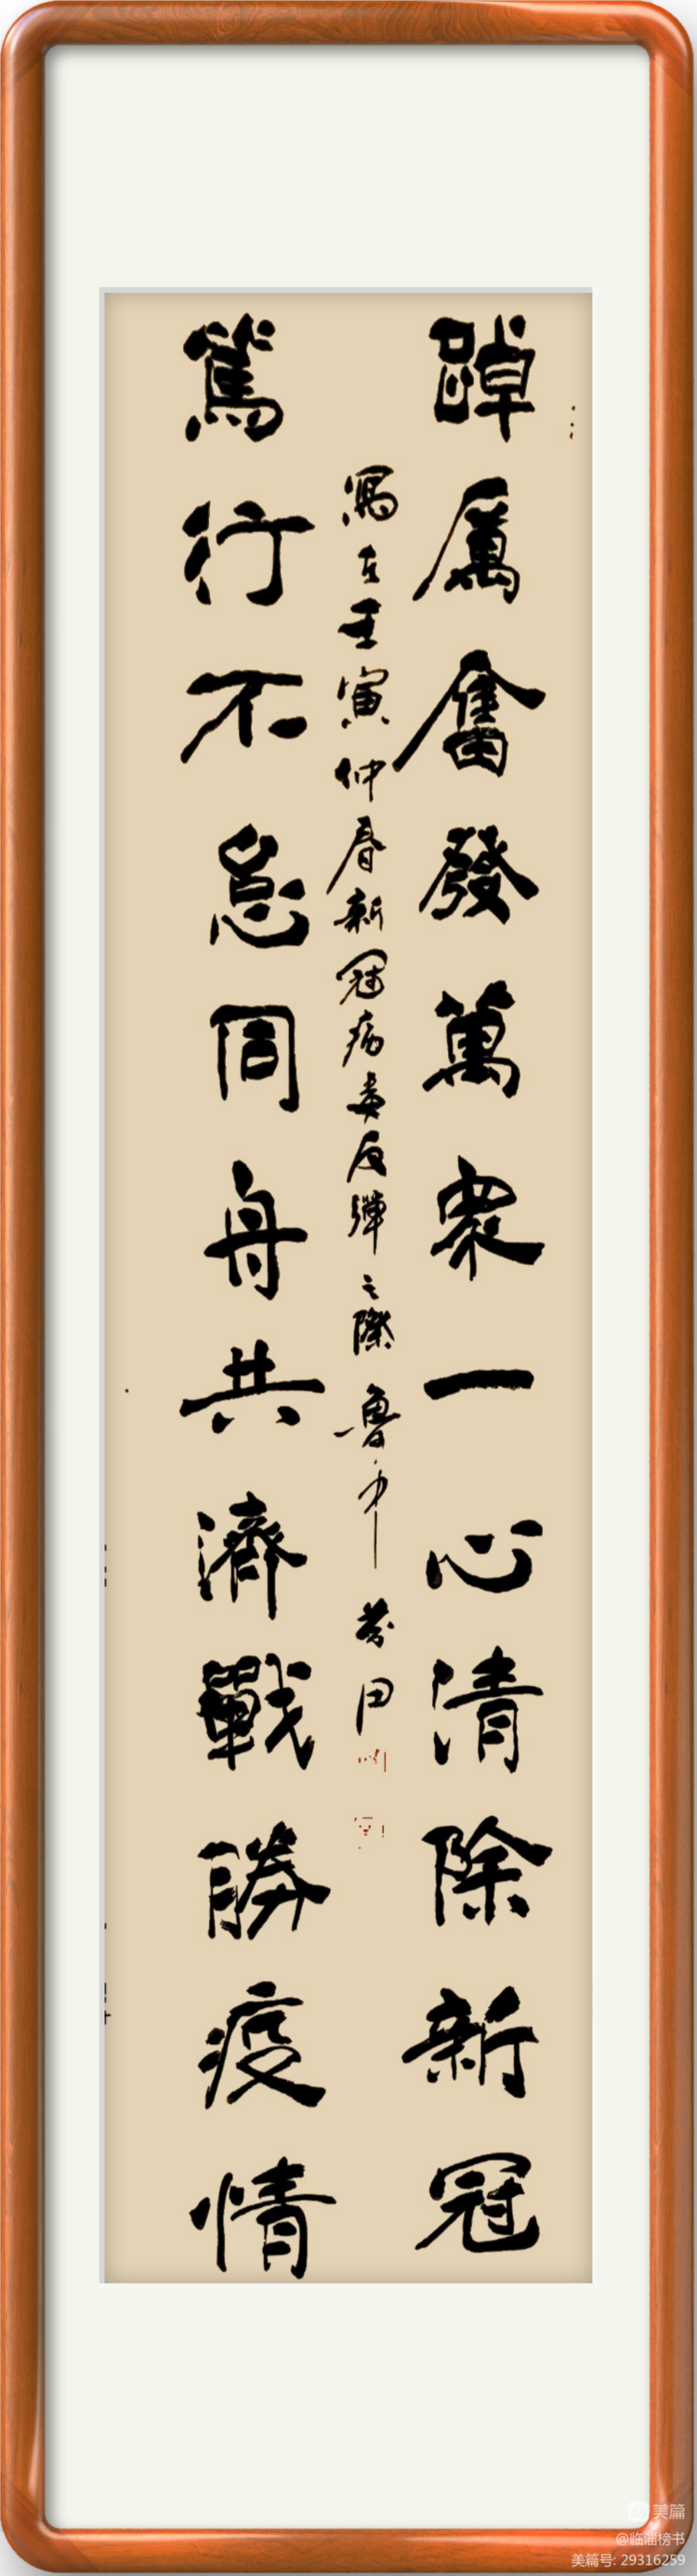 踔厲奮發萬衆一心清除新冠
寫在壬寅仲春新冠病毒反彈之際 魯中 芳田
篤行不怠同舟共濟戰勝疫情
美篇
@临淄榜书
美篇号: 29316259